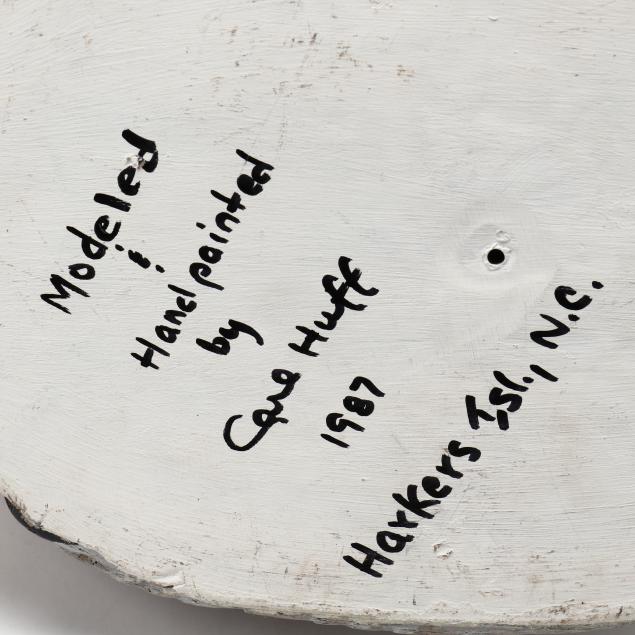 Modeled
&
Hand painted
by
Carl Huff
1987
Harkers Isl., N.C.